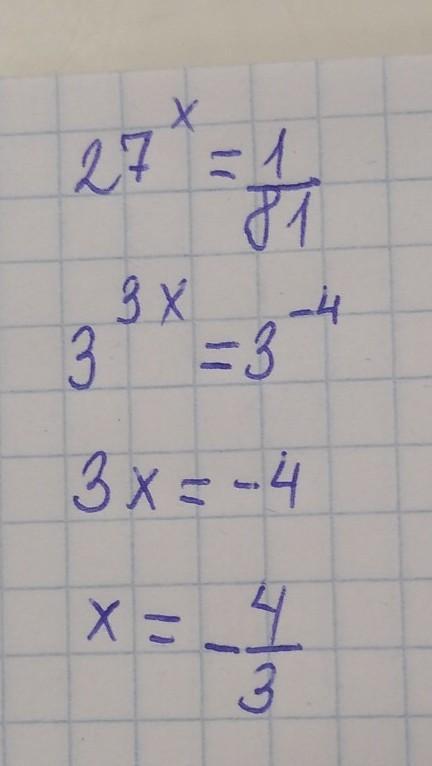 27^x = 1/81
3^3x = 3^-4
3x = -4
x = -4/3